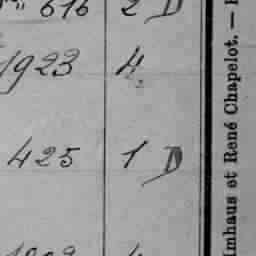 616 2 D
1923 4
425 1 D
Imhaus et René Chapelot. —